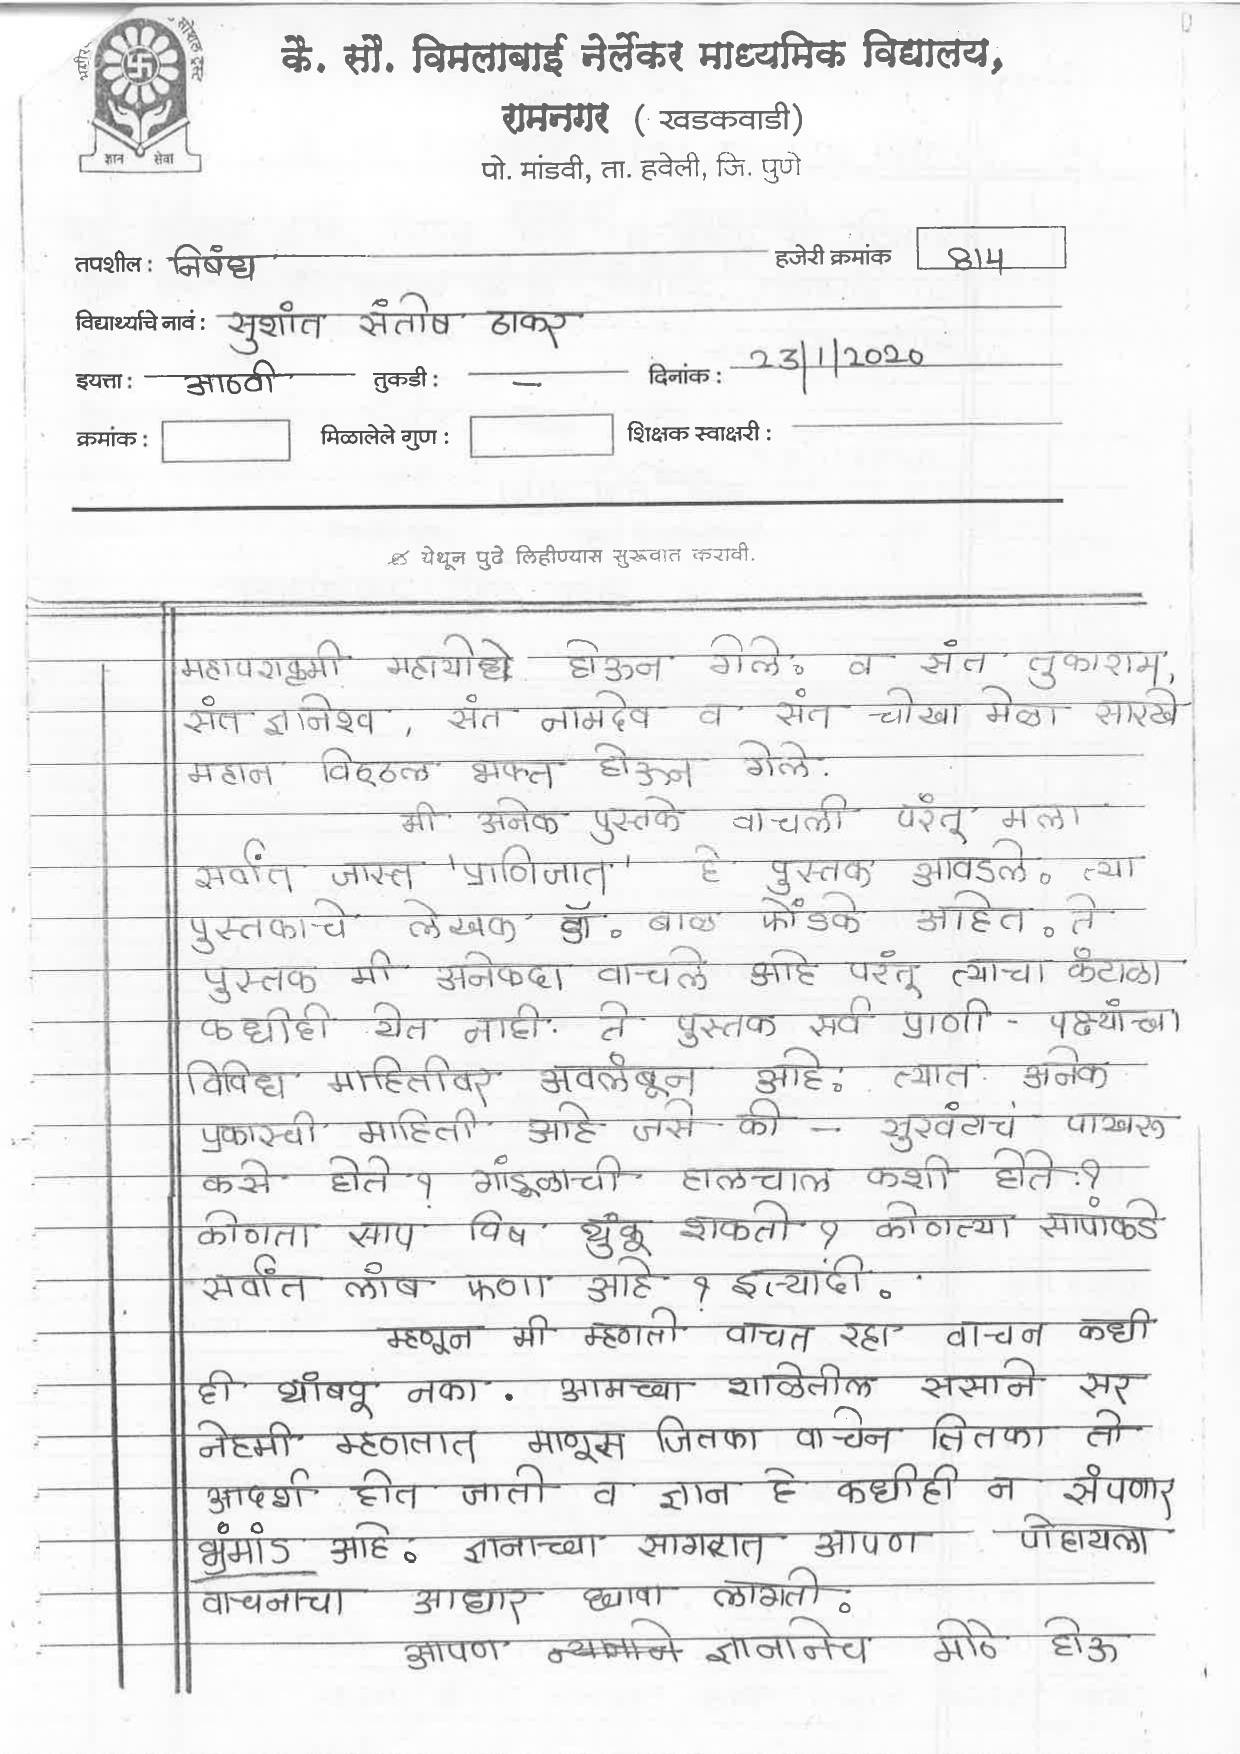 कै. सौ. विमलाबाई नेर्लेकर माध्यमिक विद्यालय,
रामनगर ( खडकवाडी)
पो. मांडवी, ता. हवेली, जि. पुणे
ज्ञान सेवा
तपशील : निबंध हजेरी क्रमांक 814
विद्यार्थ्याचे नावं : सुशांत संतोष ठाकर
इयत्ता : आठवी तुकडी : — दिनांक : 23/1/2020
क्रमांक : मिळालेले गुण : शिक्षक स्वाक्षरी :
येथून पुढे लिहीण्यास सुरूवात करावी.
महापराक्रमी महायोध्दे होऊन गेले. व संत तुकाराम,
संत ज्ञानेश्व, संत नामदेव व संत चोखा मेळा सारखे
महान विठ्ठल भक्त होऊन गेले.
मी अनेक पुस्तके वाचली परंतू मला
सर्वांत जास्त 'प्राणिजात' हे पुस्तक आवडले. त्या
पुस्तकाचे लेखक डॉ. बाळ फोंडके आहेत. ते
पुस्तक मी अनेकदा वाचले आहे परंतू त्याचा कंटाळा
कधीही येत नाही. ते पुस्तक सर्व प्राणी - पक्ष्यांच्या
विविध माहितीवर अवलंबून आहे. त्यात अनेक
प्रकारची माहिती आहे जसे की — सुरवंटाचं पाखरू
कसे होते ? गांडूळाची हालचाल कशी होते ?
कोणता साप विष थुंकू शकतो ? कोणत्या सापांकडे
सर्वांत लांब फणा आहे ? इत्यादी.
म्हणून मी म्हणतो वाचत रहा वाचन कधी
ही थांबवू नका. आमच्या शाळेतील ससाने सर
नेहमी म्हणतात माणूस जितका वाचेन तितका तो
आदर्श होत जातो व ज्ञान हे कधीही न संपणार
भ्रुंमांड आहे. ज्ञानाच्या सागरात आपण पोहायला
वाचनाचा आधार घ्यावा लागतो.
आपण ज्ञानानेच मोठे होऊ